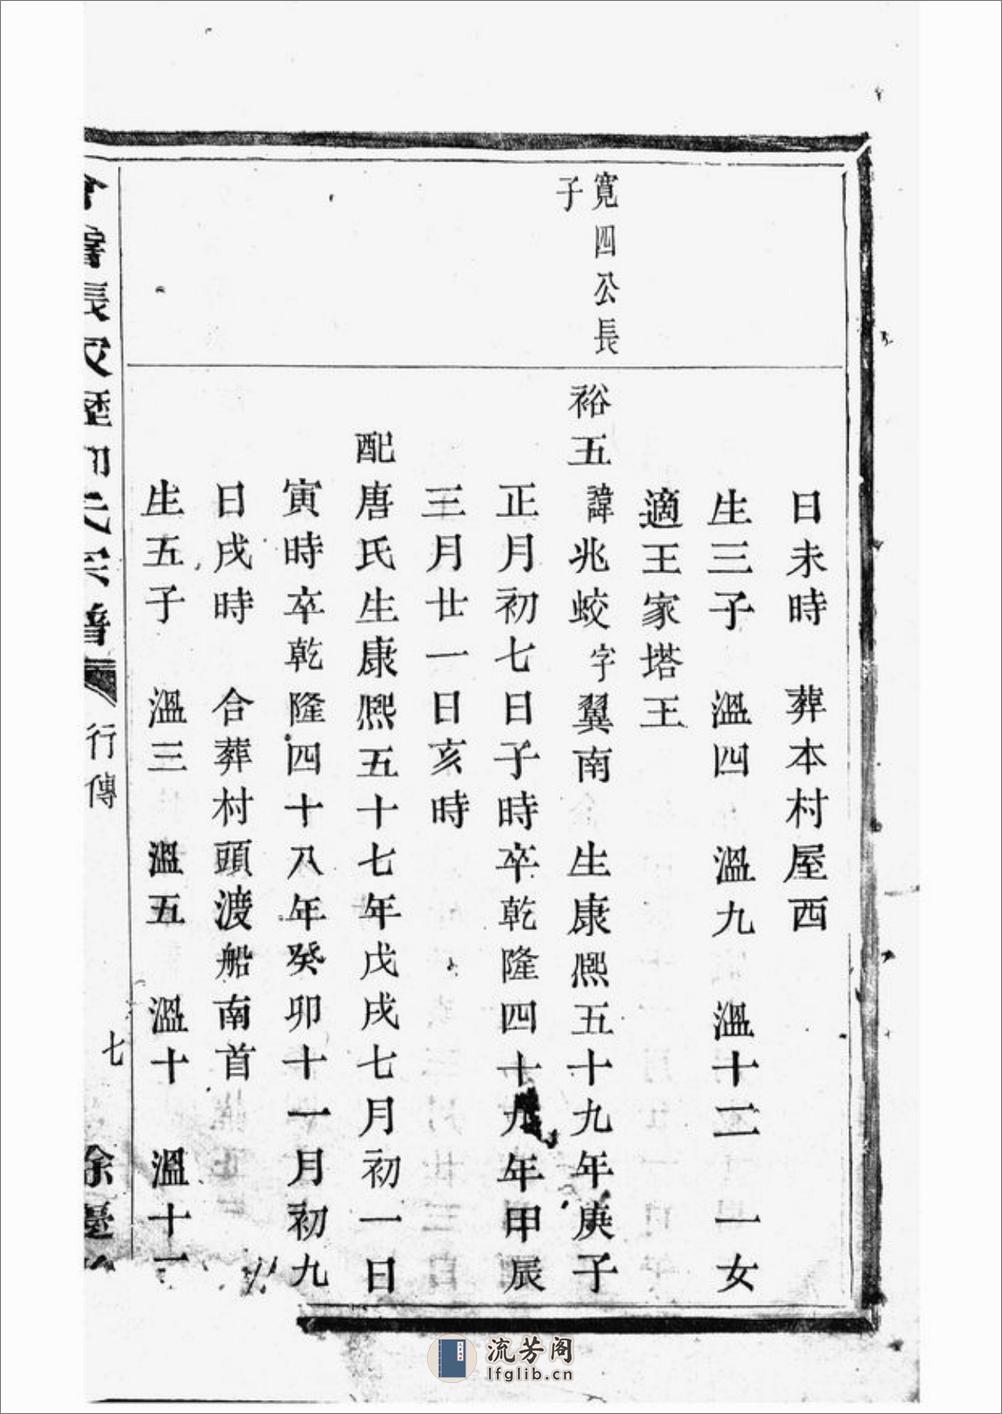 日未時　葬本村屋西
生三子　溫四　溫九　溫十二　一女
適王家塔王
寬四公長
子
裕五諱兆蛟字翼南　生康熙五十九年庚子
正月初七日子時卒乾隆四十九年甲辰
三月廿一日亥時
配唐氏生康熙五十七年戊戌七月初一日
寅時卒乾隆四十八年癸卯十一月初九
日戌時　合葬村頭渡船南首
生五子　溫三　溫五　溫十　溫十
氏宗譜
行傳
七
流芳阁
lfglib.cn